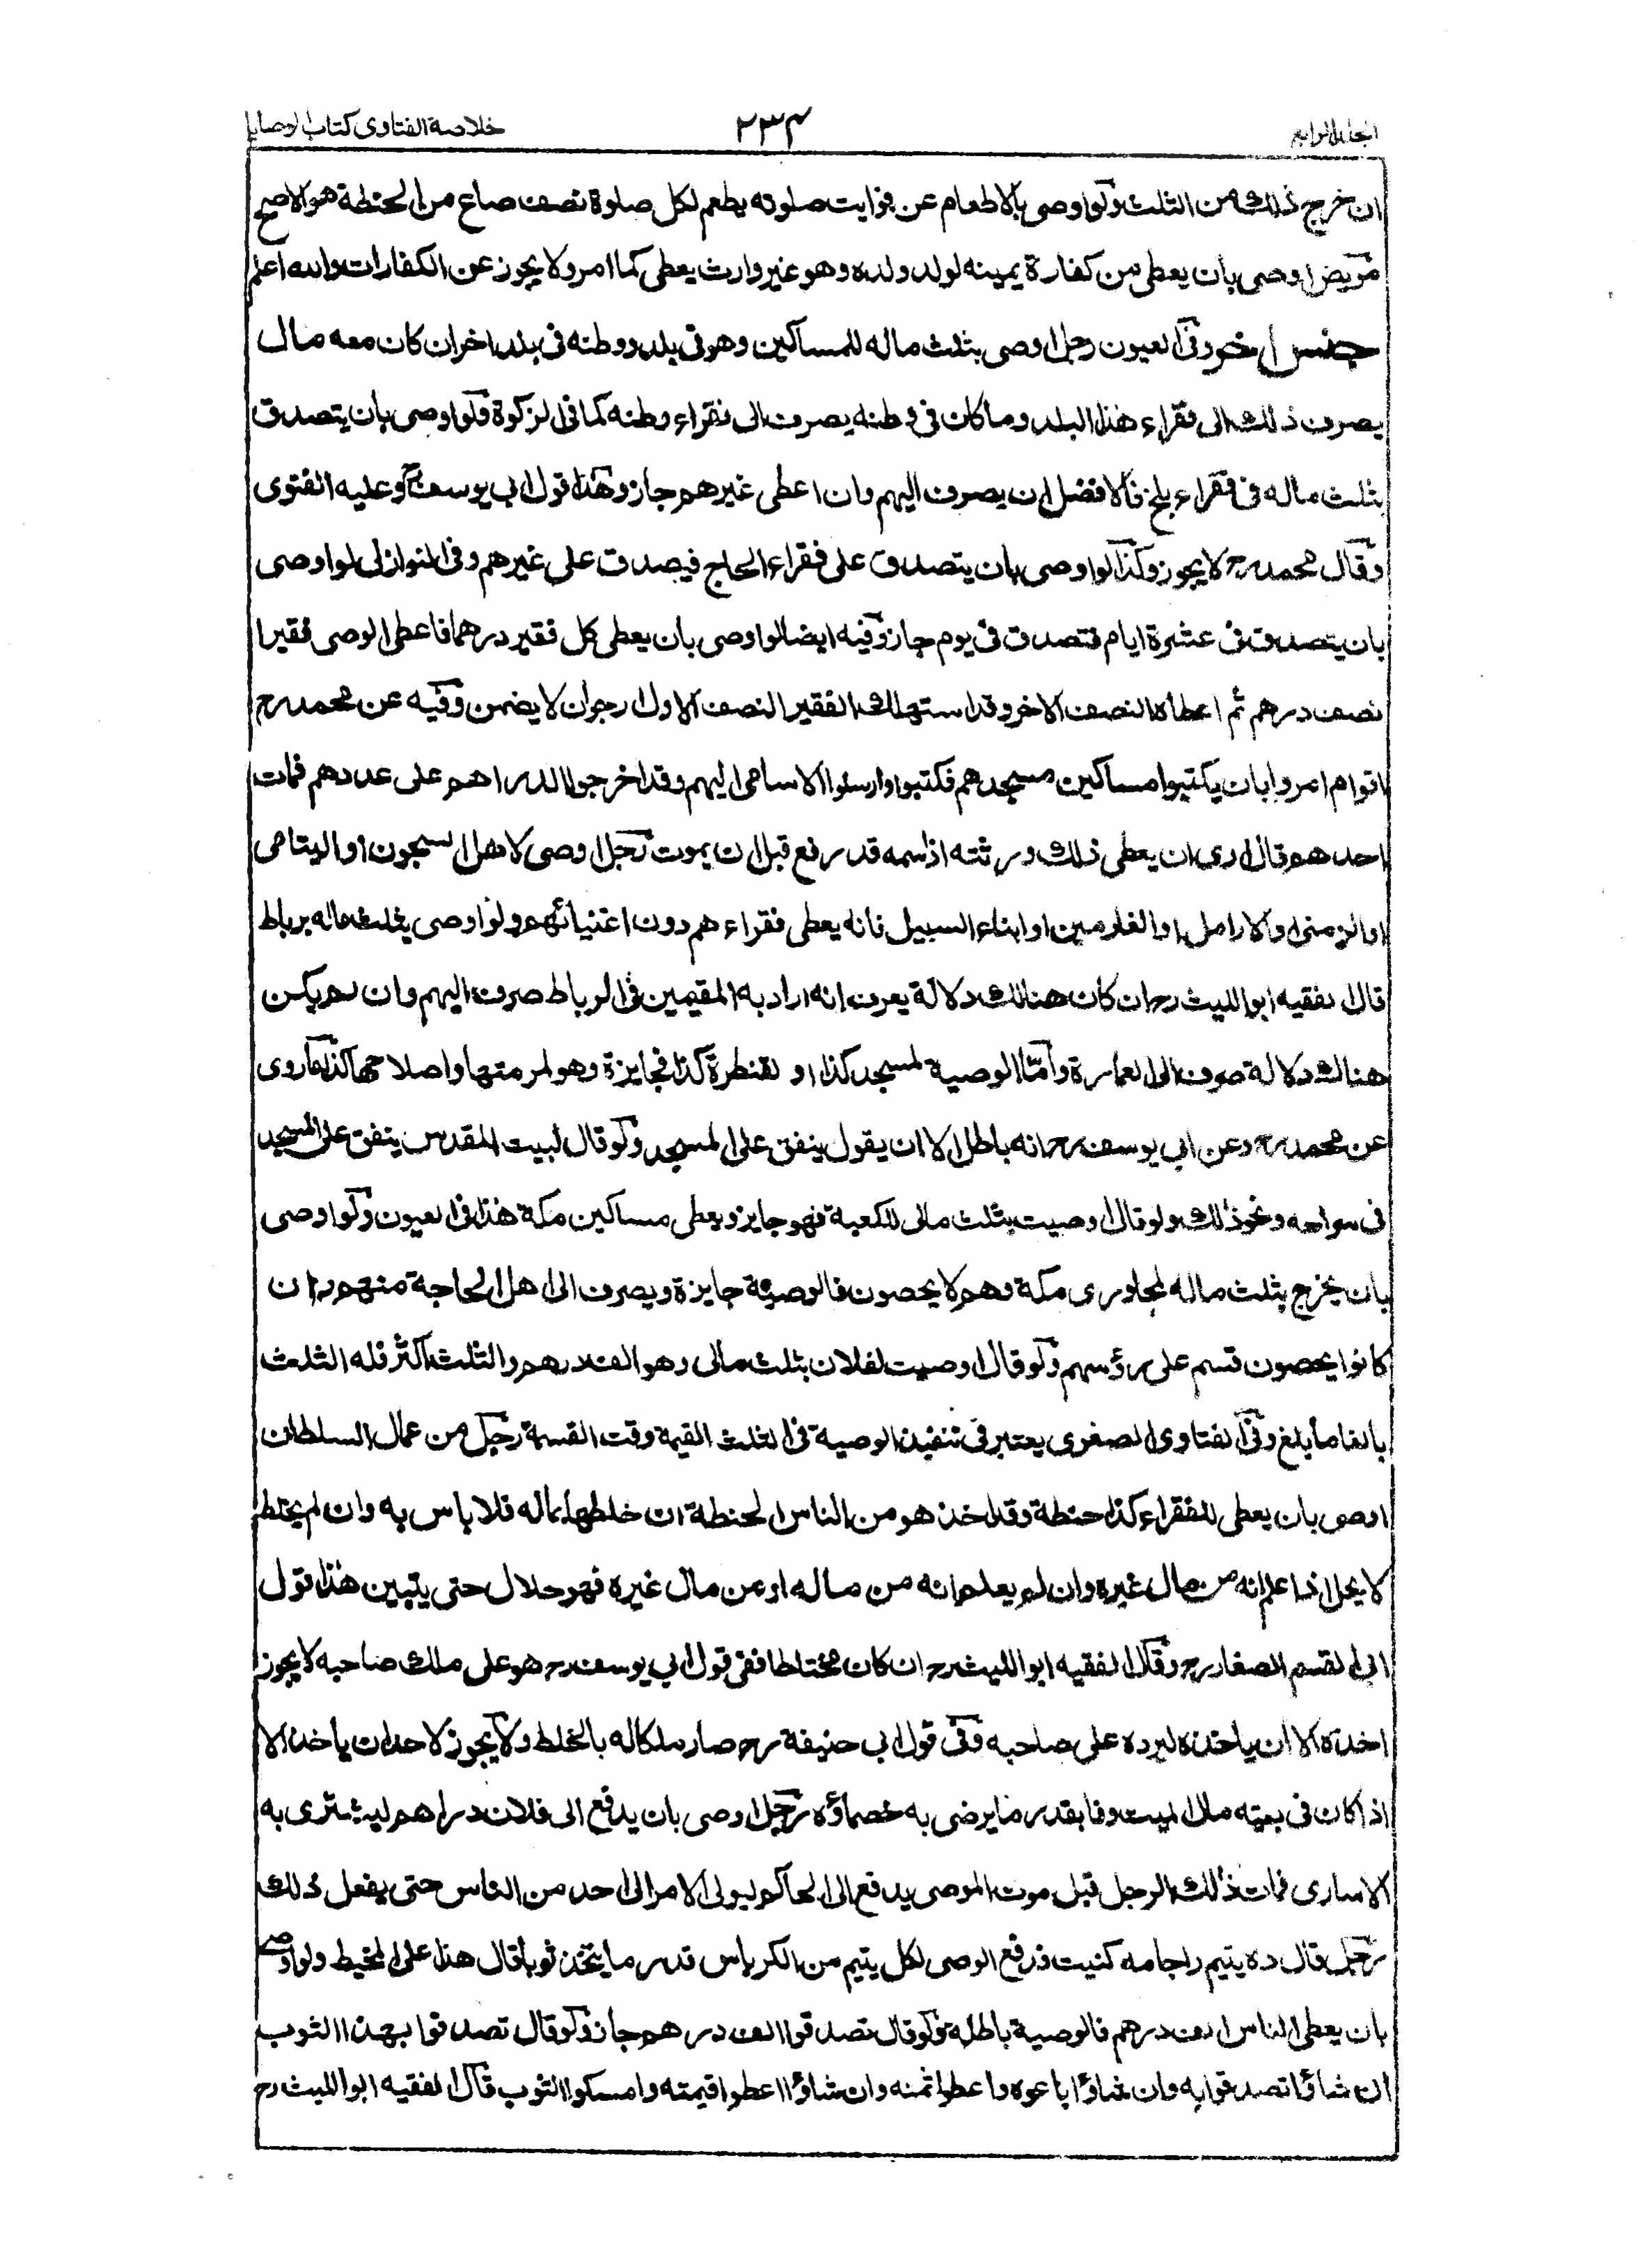 المجلد الرابع
٢٣٤
خلاصة الفتاوى كتاب الوصايا
ان خرج ذلك من الثلث ولو اوصى بالاطعام عن فوايت صلوته يطعم لكل صلوة نصف صاع من الحنطة هو الاصح
مريض اوصى بان يعطى من كفارة يمينه لولد ولده وهو غير وارث يعطى كما امر ولا يجوز عن الكفارات والله اعلم
جنس اخر وفى العيون رجل اوصى بثلث ماله للمساكين وهو فى بلد ووطنه فى بلد اخر ان كان معه مال
يصرف ذلك الى فقراء هذا البلد وما كان فى وطنه يصرف الى فقراء وطنه كما فى الزكوة ولو اوصى بان يتصدق
بثلث ماله فى فقراء بلخ فالافضل ان يصرف اليهم وان اعطى غيرهم جاز وهذا قول ابى يوسف رح وعليه الفتوى
وقال محمد رح لا يجوز وكذا لو اوصى بان يتصدق على فقراء الحاج فيصدق على غيرهم وفى النوازل لو اوصى
بان يتصدق فى عشرة ايام فتصدق فى يوم جاز وفيه ايضا لو اوصى بان يعطى كل فقير درهما فاعطى الوصى فقيرا
نصف درهم ثم اعطاه النصف الاخر وقد استهلك الفقير النصف الاول ارجو ان لا يضمن وفيه عن محمد رح
اقوام امروا بان يكتبوا مساكين مسجدهم فكتبوا وارسلوا الاسامى اليهم وقد اخرجوا الدراهم على عددهم فمات
احدهم قال ارى ان يعطى ذلك ورثته اذ اسمه قد رفع قبل ان يموت رجل اوصى لاهل السجون او اليتامى
او الزمنى او الارامل او الغارمين او ابناء السبيل فانه يعطى فقراءهم دون اغنيائهم ولو اوصى بثلث ماله برباط
قال الفقيه ابو الليث رح ان كان هنالك دلالة يعرف انه اراد به المقيمين فى الرباط صرف اليهم وان لم يكن
هنالك دلالة صرف الى العمارة واما الوصية لمسجد كذا او لقنطرة كذا فجايزة وهو لمرمتها واصلاحها كذا روى
عن محمد رح وعن ابى يوسف رح انه باطل الا ان يقول ينفق على المسجد ولو قال لبيت المقدس ينفق على المسجد
فى سراجه ونحو ذلك ولو قال اوصيت بثلث مالى للكعبة فهو جايز ويعطى مساكين مكة هذا فى العيون ولو اوصى
بان يخرج بثلث ماله لمجاورى مكة وهم لا يحصون فالوصية جايزة ويصرف الى اهل الحاجة منهم وان
كانوا يحصون قسم على رؤسهم ولو قال اوصيت لفلان بثلث مالى وهو الف درهم والثلث اكثر فله الثلث
بالغا ما بلغ وفى الفتاوى الصغرى يعتبر فى تنفيذ الوصية فى الثلث القيمة وقت القسمة رجل من عمال السلطان
اوصى بان يعطى للفقراء كذا حنطة وقد اخذ هو من الناس الحنطة ان خلطها بماله فلا باس به وان لم يختلط
لا يحل اذا علم انه من مال غيره وان لم يعلم انه من ماله او من مال غيره فهو حلال حتى يتبين هذا قول
ابى القسم الصفار رح وقال الفقيه ابو الليث رح ان كان مختلطا ففى قول ابى يوسف رح هو على ملك صاحبه لا يجوز
اخذه الا ان ياخذه ليرده على صاحبه وفى قول ابى حنيفة رح صار ملكا له بالخلط ولا يجوز لاحد ان ياخذ الا
اذا كان فى بقية ملك الميت وفا بقدر ما يرضى به خصماؤه رجل اوصى بان يدفع الى فلان دراهم ليشترى به
الاسارى فمات ذلك الرجل قبل موت الموصى يدفع الى الحاكم ليولى الامر الى احد من الناس حتى يفعل ذلك
رجل قال ده يتيم را جامه كنيت فدفع الوصى لكل يتيم من الكرباس قدر ما يتخذ ثوبا قال هذا على المخيط ولو اوصى
بان يعطى الناس الف درهم فالوصية باطلة ولو قال تصدقوا الف درهم جاز ولو قال تصدقوا بهذا الثوب
ان شاؤا تصدقوا به وان شاؤا باعوه واعطوا ثمنه وان شاؤا اعطوا قيمته وامسكوا الثوب قال الفقيه ابو الليث رح